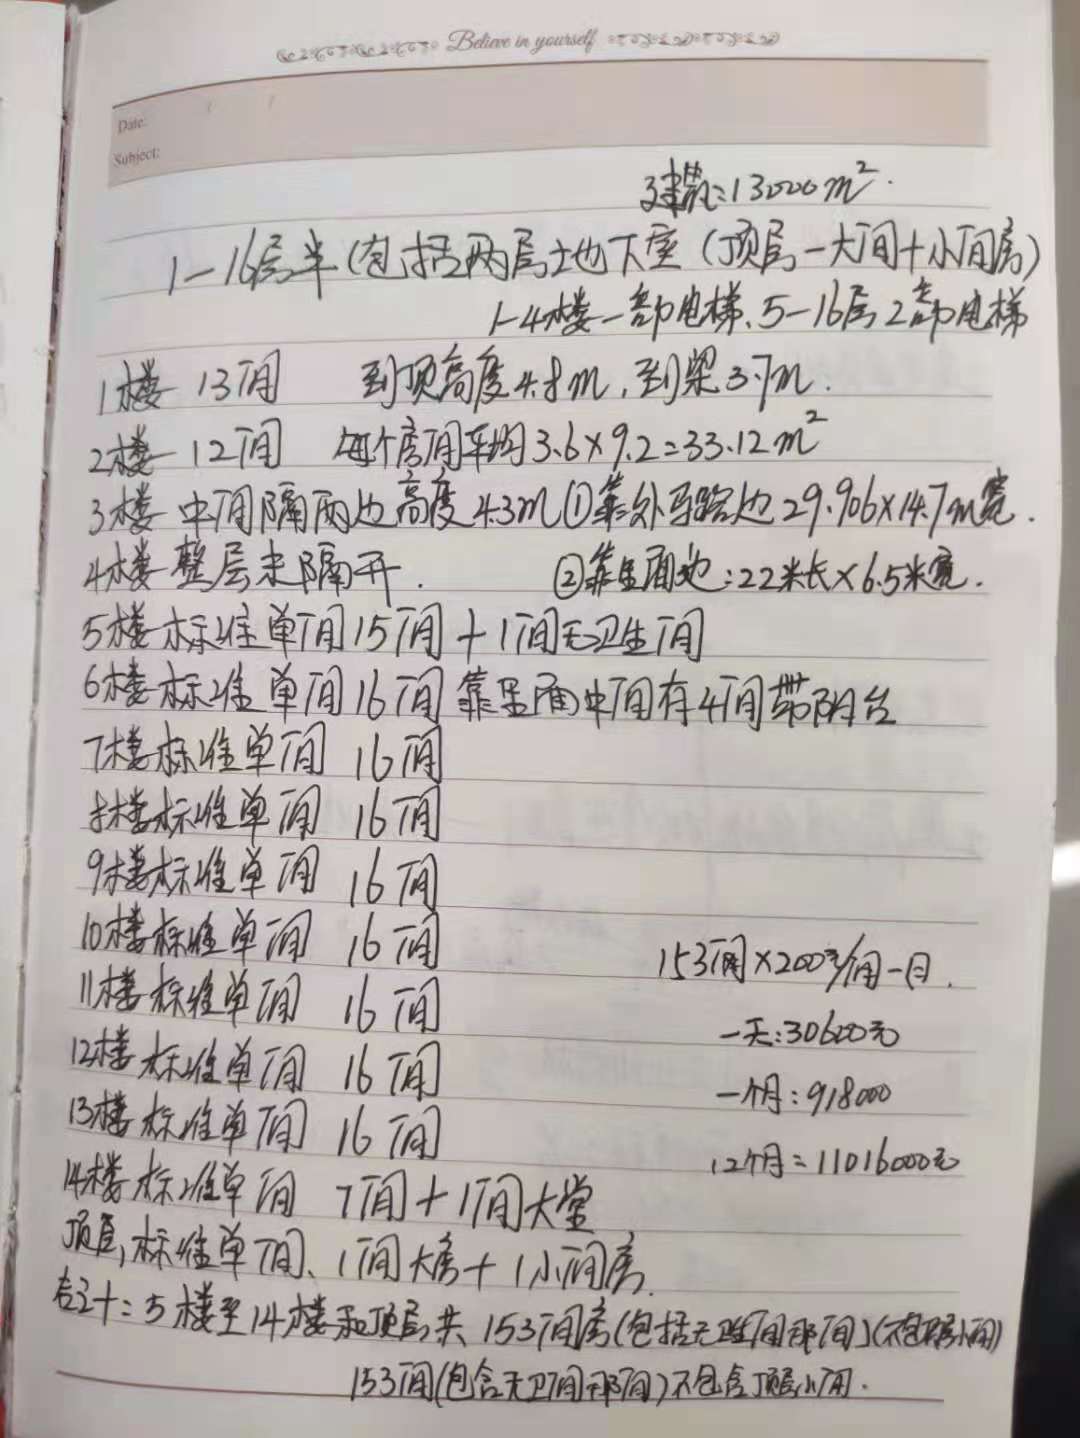 Believe in yourself
Date: / /
Subject:
建筑:13000m².
1-16层半(包括两层地下室(顶层一大间+小间房)
1-4楼一部电梯、5-16层2部电梯
1楼 13间 到顶高度4.8m,到梁3.7m.
2楼 12间 每个房间平均3.6×9.2=33.12m²
3楼 中间隔两边高度4.3m①靠外马路边29.906×14.7m宽.
4楼 整层未隔开. ②靠里面边:22米长×6.5米宽.
5楼标准单间15间+1间无卫生间
6楼标准单间16间靠里面中间有4间带阴台
7楼标准单间 16间
8楼标准单间 16间
9楼标准单间 16间
10楼标准单间 16间
153间×200元/间一日.
11楼标准单间 16间
一天:30600元
12楼标准单间 16间
一个月:918000
13楼标准单间 16间
12个月=11016000元
14楼标准单间 7间+1间大堂
顶层,标准单间、1间大房+1小间房.
合计:5楼至14楼和顶层共153间房(包括无卫生间那间)(不包顶层小间)
153间(包含无卫间那间)不包含顶层小间.